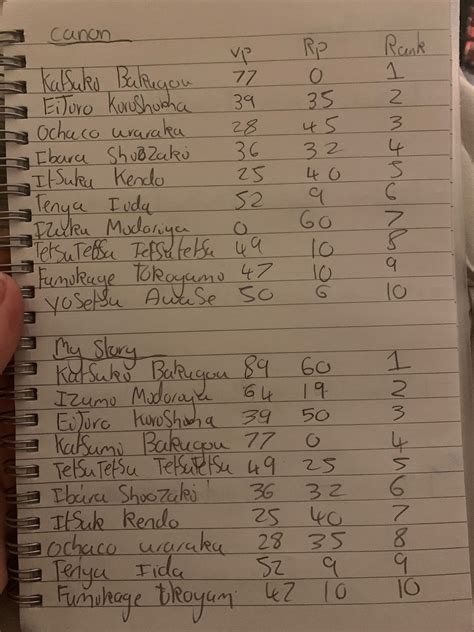 Canon
VP Rp Rank
Katsuko Bakugou 77 0 1
EiJuro Kuroshubha 39 35 2
Ochaco uraraka 28 45 3
Ibara Shoozaki 36 32 4
Itsuka Kendo 25 40 5
Tenya Iida 52 9 6
Izuku Modoriya 0 60 7
TetsuTetsu Tetsutetsu 49 10 8
Fumokage tokoyamo 47 10 9
Yosetsu Awase 50 6 10
My Story
Katsuko Bakugou 89 60 1
Izumo Modoraya 64 19 2
EiJuro Kuroshoha 39 50 3
Katsumo Bakugou 77 0 4
TetsuTetsu TetsuTetsu 49 25 5
Ibara Shoozaki 36 32 6
Itsuk Kendo 25 40 7
Ochaco uraraka 28 35 8
Tenya Iida 52 9 9
Fumokage tokoyam 47 10 10